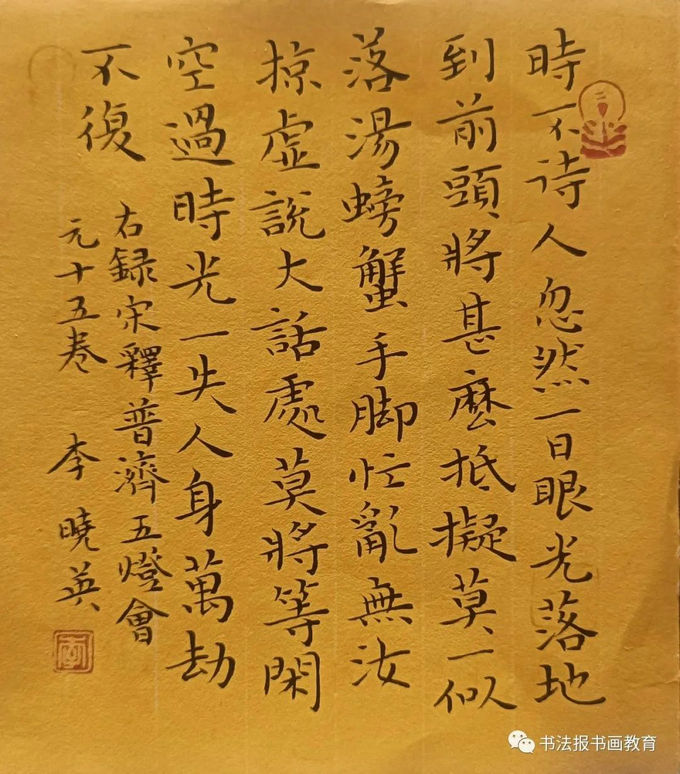 時不待人忽然一日眼光落地
到前頭將甚麼抵擬莫一似
落湯螃蟹手脚忙亂無汝
掠虛說大話處莫將等閑
空過時光一失人身萬劫
不復
右録宋釋普濟五燈會
元十五卷 李曉英
李
书法报书画教育